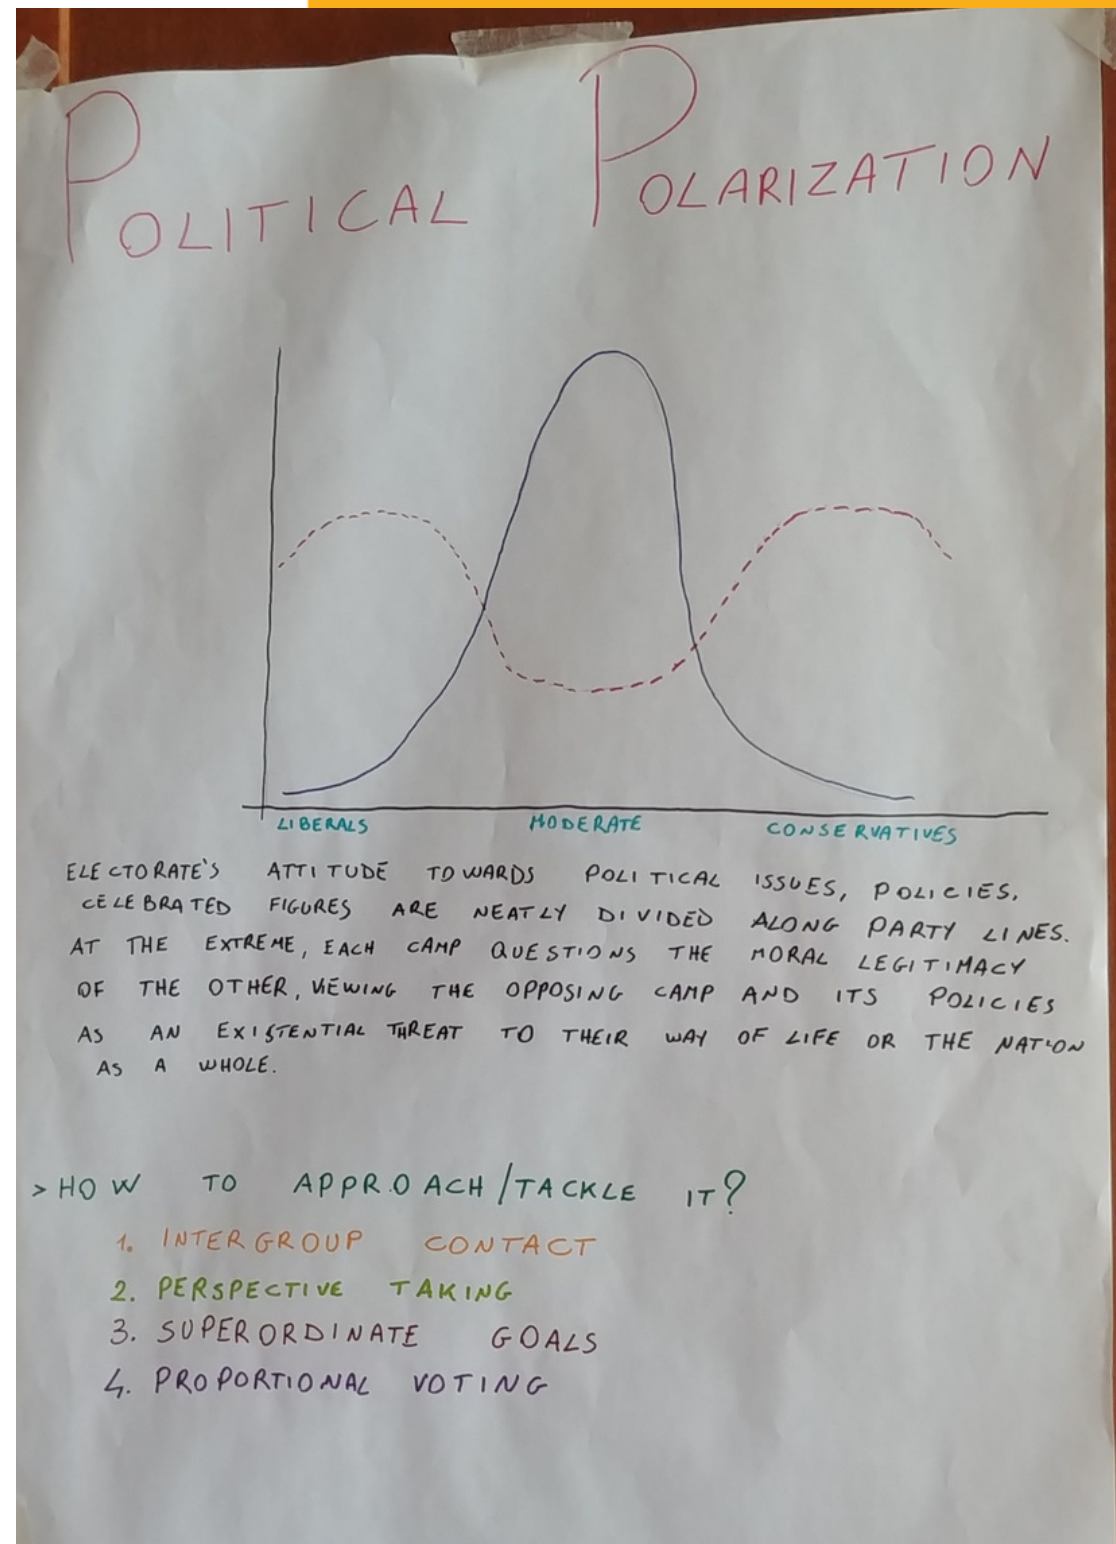 POLITICAL POLARIZATION
LIBERALS MODERATE CONSERVATIVES
ELECTORATE'S ATTITUDE TOWARDS POLITICAL ISSUES, POLICIES,
CELEBRATED FIGURES ARE NEATLY DIVIDED ALONG PARTY LINES.
AT THE EXTREME, EACH CAMP QUESTIONS THE MORAL LEGITIMACY
OF THE OTHER, VIEWING THE OPPOSING CAMP AND ITS POLICIES
AS AN EXISTENTIAL THREAT TO THEIR WAY OF LIFE OR THE NATION
AS A WHOLE.
> HOW TO APPROACH/TACKLE IT?
1. INTERGROUP CONTACT
2. PERSPECTIVE TAKING
3. SUPERORDINATE GOALS
4. PROPORTIONAL VOTING